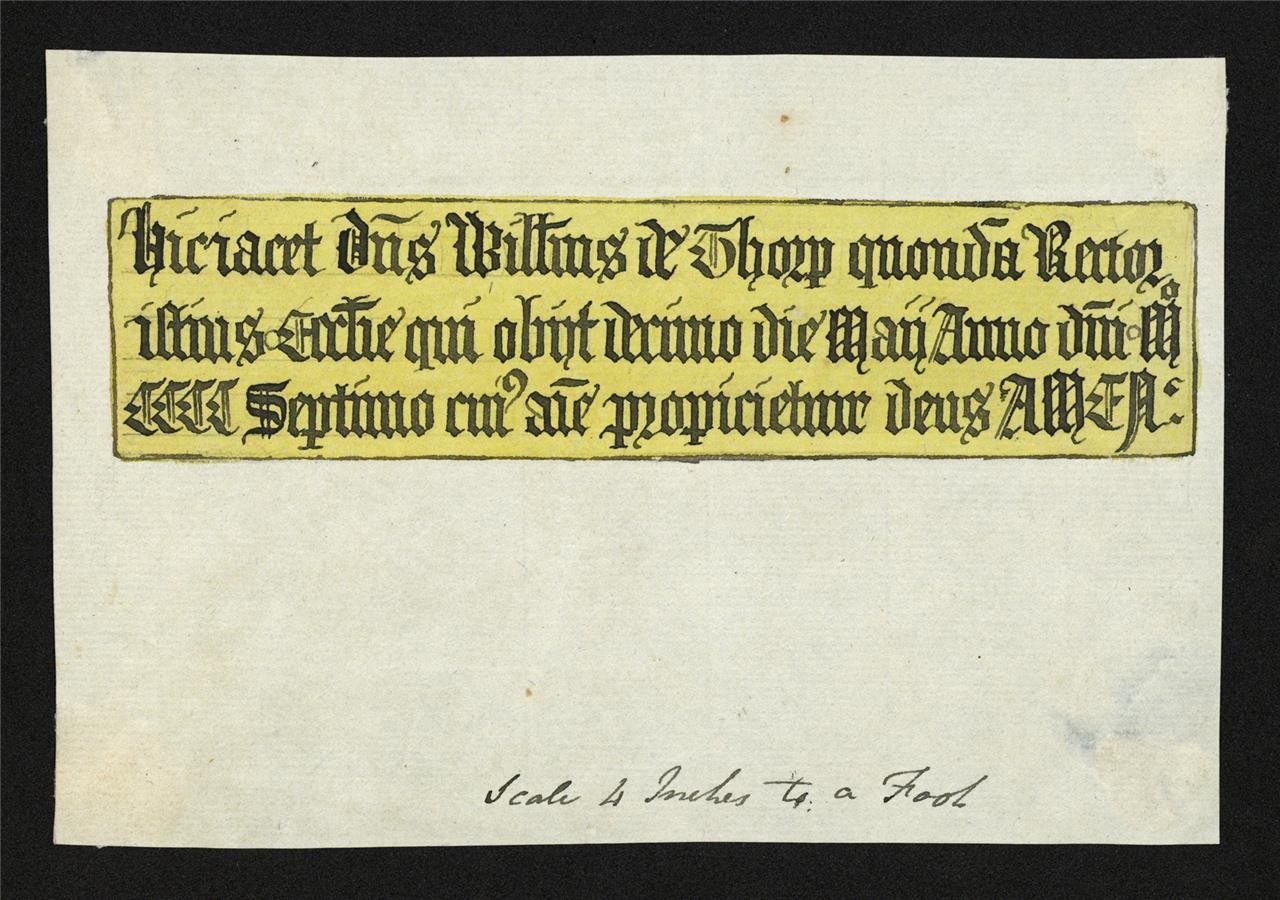 Hic iacet dn̄s Willm̄us de Thorp quondā Rector
istius Eccl̄ie qui obijt decimo die Maij Anno dn̄i Mº
CCCC Septimo cui⁹ aīe propicietur deus AMEN
Scale 4 Inches to a Foot